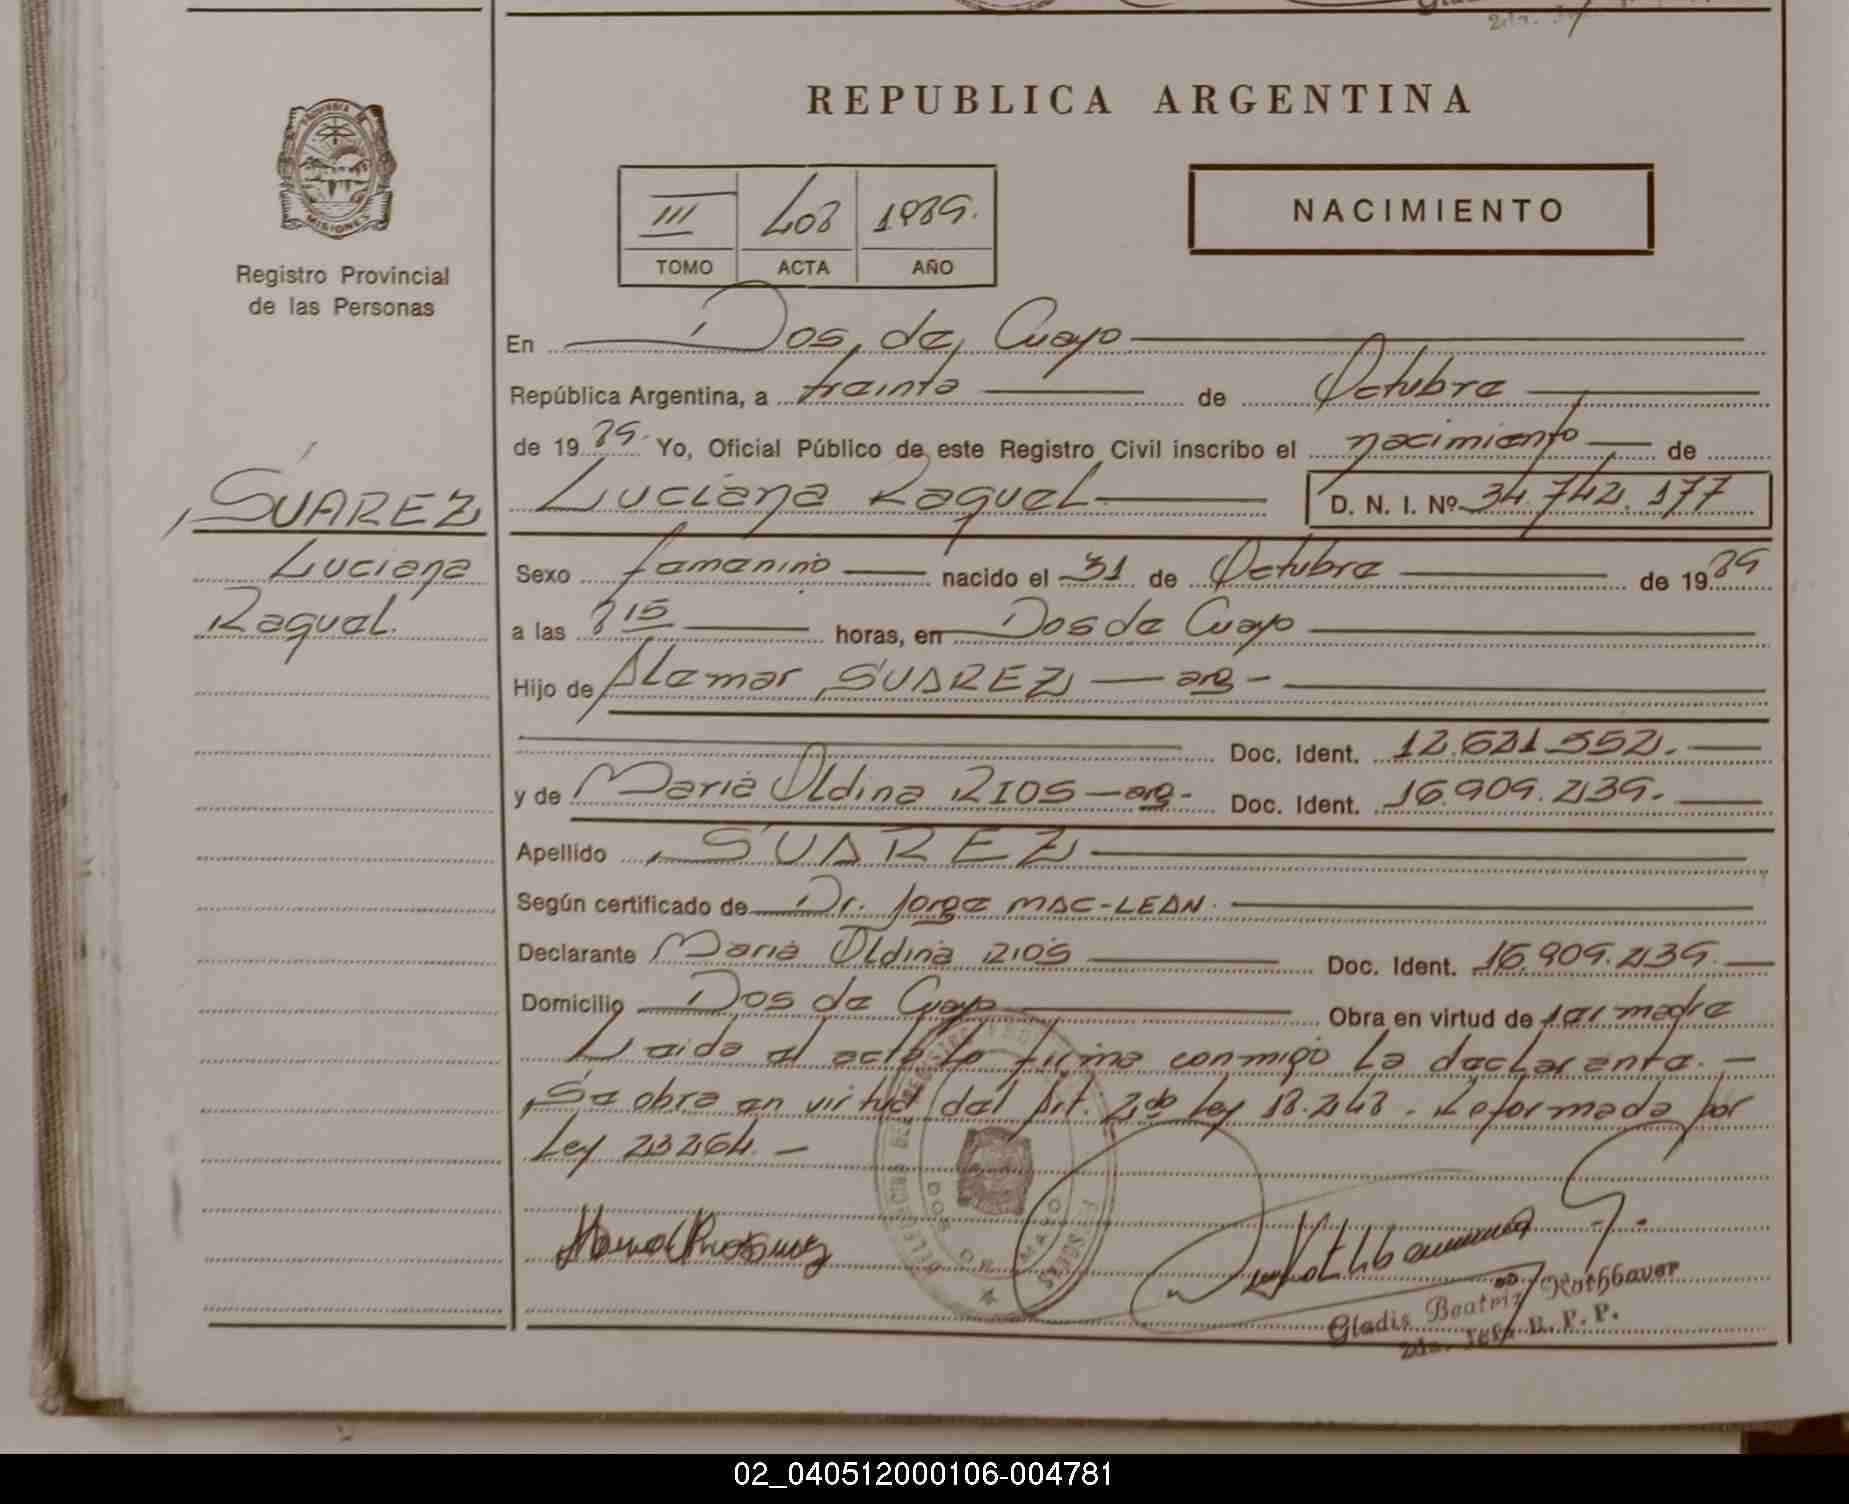 REPUBLICA ARGENTINA
MISIONES
Registro Provincial
de las Personas
NACIMIENTO
III 408 1989.
TOMO ACTA AÑO
En Dos de Mayo
República Argentina, a treinta de Octubre
de 1989. Yo, Oficial Público de este Registro Civil inscribo el nacimiento de
Luciana Raquel D. N. I. Nº 34.742.177
SUAREZ
Luciana
Raquel.
Sexo femenino nacido el 31 de Octubre de 1989
a las 8 15 horas, en Dos de Mayo
Hijo de Alemar SUAREZ — arg -
Doc. Ident. 12.621.552.-
y de Maria Oldina RIOS — arg - Doc. Ident. 16.909.239.-
Apellido SUAREZ
Según certificado de Dr. Jorge MAC-LEAN.
Declarante Maria Oldina RIOS Doc. Ident. 16.909.239.
Domicilio Dos de Mayo Obra en virtud de ser madre
Leida el acta la firma conmigo la declarante. —
Se obra en virtud del Art. 2do Ley 18.248 - Reformada por
Ley 23264. —
DOS DE MAYO
MISIONES
Gladis Beatriz Rothbaver
2da. Jefa R. P. P.
02_040512000106-004781